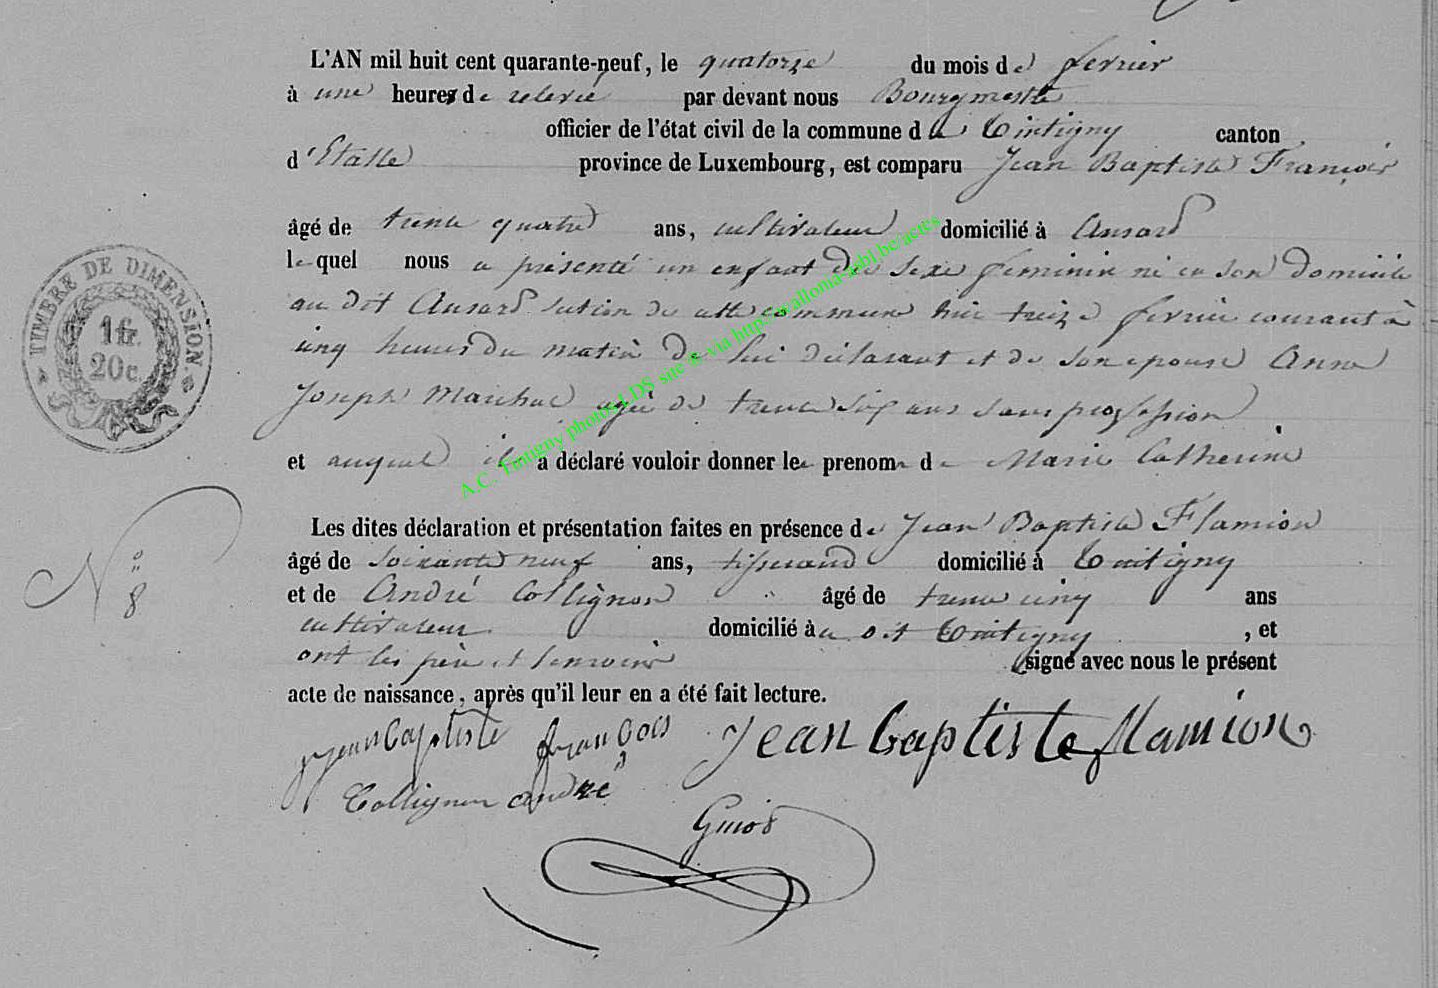 L'AN mil huit cent quarante-neuf, le quatorze du mois de fevrier
à une heure de relevée par devant nous Bourgmestre
officier de l'état civil de la commune de Tintigny canton
d'Etalle province de Luxembourg, est comparu Jean Baptiste François
âgé de trente quatre ans, cultivateur domicilié à Ansart
le quel nous a présenté un enfant du sexe feminin né en son domicile
au dit Ansart section de cette commune hier treize fevrier courant à
cinq heures du matin de lui déclarant et de son epouse Anne
Joseph Marchal agée de trente six ans sans profession
et auquel il a déclaré vouloir donner les prenoms de Marie Catherine
Les dites déclaration et présentation faites en présence de Jean Baptiste Flamion
âgé de soixante neuf ans, tisserand domicilié à Tintigny
et de André Collignon âgé de trente cinq ans
cultivateur domicilié à au dit Tintigny, et
ont les père et temoins signé avec nous le présent
acte de naissance, après qu'il leur en a été fait lecture.
jean baptiste françois Jean baptiste flamion
Collignon andré
Guiot
TIMBRE DE DIMENSION.
1 fr.
20 c.
N° 8
A.C. Tintigny photos LDS site © via http://wallonia-asbl.be/actes